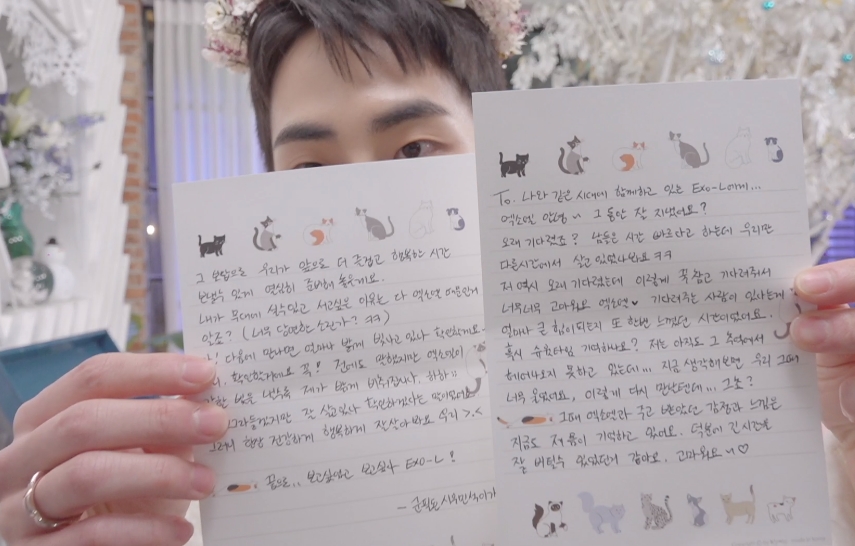 To. 나와 같은 시대에 함께하고 있는 Exo-L에게...
엑소엘 안녕~ 그 동안 잘 지냈어요?
오래 기다렸죠? 남들은 시간 빠르다고 하는데 우리만
다른시간에서 살고 있었나봐요 ㅋㅋ
저 역시 오래 기다렸는데 이렇게 꾹 참고 기다려줘서
너무너무 고마워요 엑소엘♥ 기다려주는 사람이 있다는게
얼마나 큰 힘이되는지 또 한번 느꼈던 시간이었어요.
혹시 슈퍼타임 기억하나요? 저는 아직도 그 추억에서
헤어나오지 못하고 있는데... 지금 생각해보면 우리 그때
너무 울었어요, 이렇게 다시 만날텐데... 그쵸?
그때 엑소엘과 주고 받았던 감정과 느낌은
지금도 저 몸이 기억하고 있어요. 덕분에 긴시간을
잘 버틸수 있었던거 같아요. 고마워요~♡
그 보답으로 우리가 앞으로 더 즐겁고 행복한 시간
보낼수 있게 열심히 준비해 놓을게요.
내가 무대에 설수있고 서고싶은 이유는 다 엑소엘 때문인거
알죠? (너무 당연한 소린가? ㅋㅋ)
다음에 만나면 얼마나 밝게 빛나고 있나 확인할거에요
확인할거에요 꼭! 전에도 말했지만 엑소엘이
제가 밝게 비춰줄게요, 하하;;
잘 살고있나 확인하겠다는 말이었어요
그러니 항상 건강하게 행복하게 잘살아봐요 우리 >.<
끝으로.. 보고싶었고 보고싶다 Exo-L!